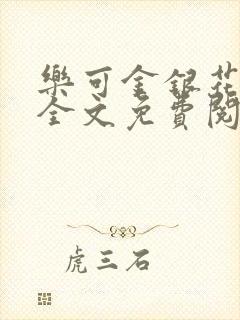 樂可金銀花
全文免費閱
虎三石